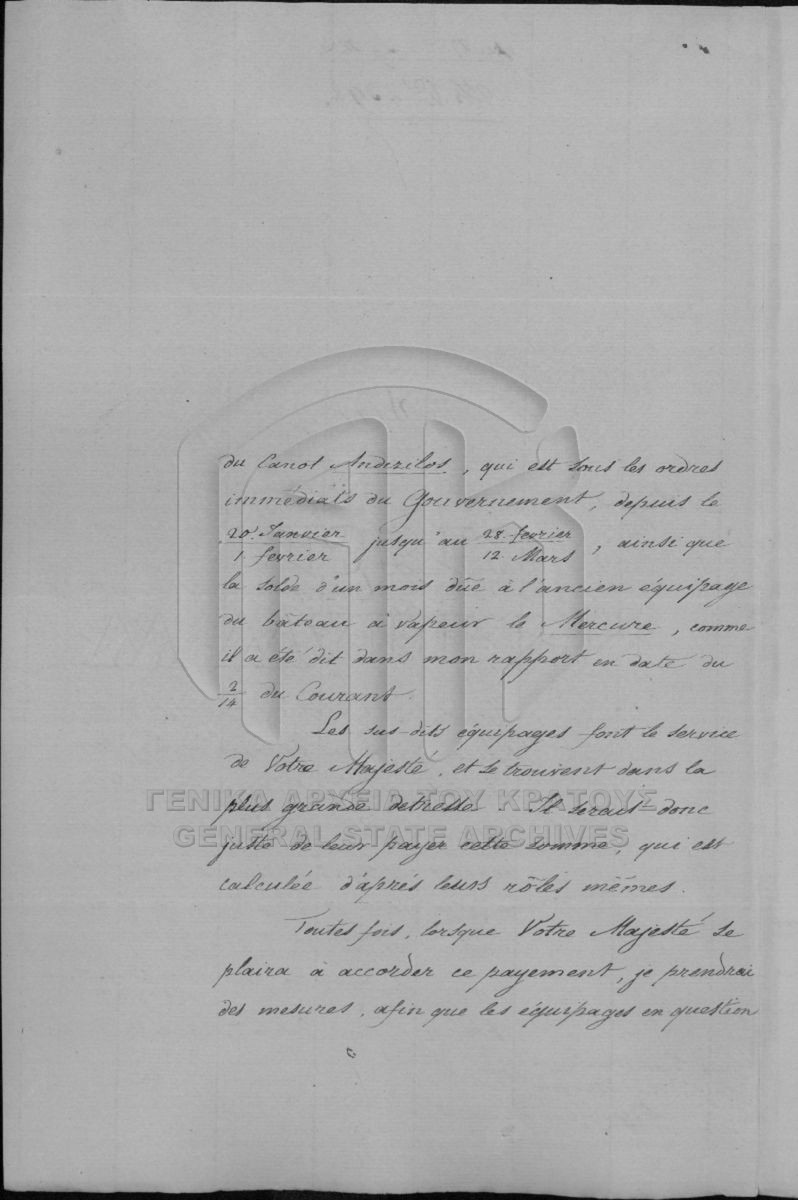 du Canot Anduzilos, qui est sous les ordres
immédiats du Gouvernement, depuis le
20 Janvier / 1 fevrier jusqu'au 28 fevrier / 12 Mars, ainsi que
la solde d'un mois dûe à l'ancien équipage
du bâteau à vapeur le Mercure, comme
il a été dit dans mon rapport en date du
2/14 du Courant.
Les sus-dits équipages font le service
de Votre Majesté, et se trouvent dans la
plus grande detresse. Il serait donc
juste de leur payer cette somme, qui est
calculée d'après leurs rôles mêmes.
Toutes fois, lorsque Votre Majesté se
plaira à accorder ce payement, je prendrai
des mesures, afin que les équipages en question
ΓΕΝΙΚΑ ΑΡΧΕΙΑ ΤΟΥ ΚΡΑΤΟΥΣ
GENERAL STATE ARCHIVES